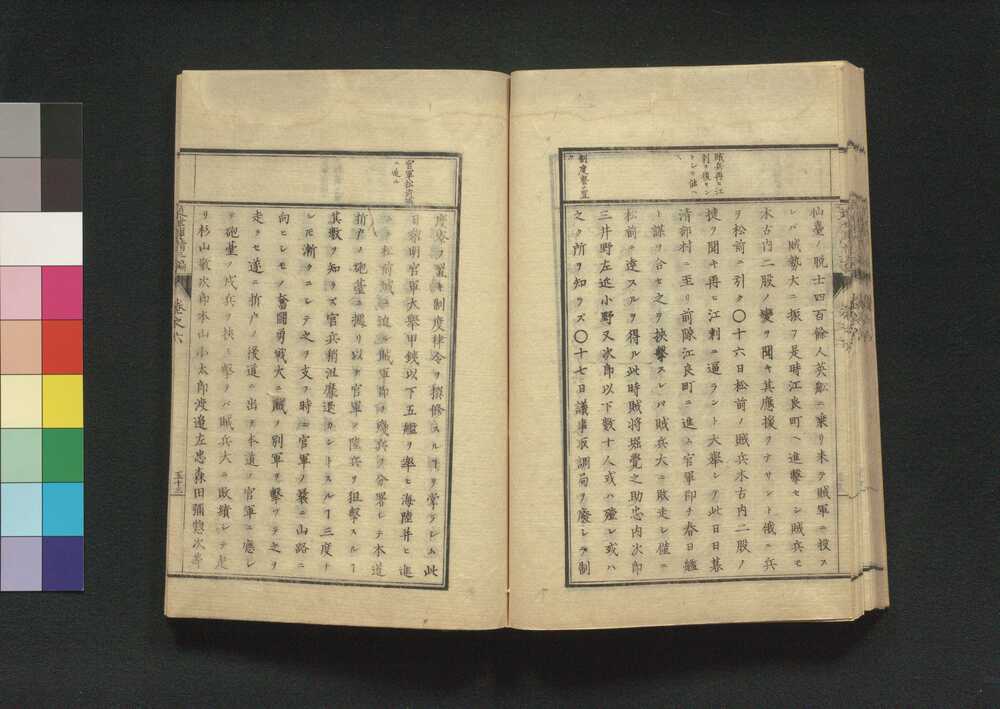 賊兵再ヒ江
制度寮ヲ置
ク
仙臺ノ脱士四百餘人英船ニ乗リ来テ賊軍ニ投ス
レバ賊勢大ニ振フ是時江良町ヘ進擊セシ賊兵モ
木古内二股ノ變ヲ聞キ其應援ヲナサント俄ニ兵
ヲ松前ニ引ク〇十六日松前ノ賊兵木古内二股ノ
捷ヲ聞キ再ヒ江刺ニ逼ラント大舉シテ此日日暮
清部村ニ至リ前隊江良町ニ進ム官軍即チ春日艦
ト謀ヲ合セ之ヲ挾擊スレバ賊兵大ニ敗走シ僅ニ
松前ニ達スルヲ得ル此時賊將堀覺之助忠内次郎
三井野左近小野又次郎以下數十人或ハ殪レ或ハ
之ク所ヲ知ラズ〇十七日議事取調局ヲ廢シテ制
官軍松前城
ニ逼ル
度寮ヲ置キ制度律令ヲ撰修スルヿヲ掌ラシム此
日黎明官軍大舉甲鐵以下五艦ヲ率ヒ海陸并ヒ進
ンテ松前城ニ迫ル賊軍即チ殘兵ヲ分署シテ本道
折戸ノ砲臺ニ據リ以テ官軍ノ陸兵ヲ狙擊スルヿ
其數ヲ知ラズ官兵稍沮靡還カントスルヿ三度ナ
レ𪜈漸クニシテ之ヲ支フ時ニ官軍ノ曩ニ山路ニ
向ヒシモノ奮鬪勇戰大ニ賊ノ別軍ヲ擊ツテ之ヲ
走ラセ遂ニ折戸ノ後道ニ出テ本道ノ官軍ニ應シ
テ砲臺ノ戍兵ヲ挾ミ擊テバ賊兵大ニ敗績シテ走
リ杉山敬次郎本山小太郎渡邉左忠森田彌惣次等
卷之六
五十三